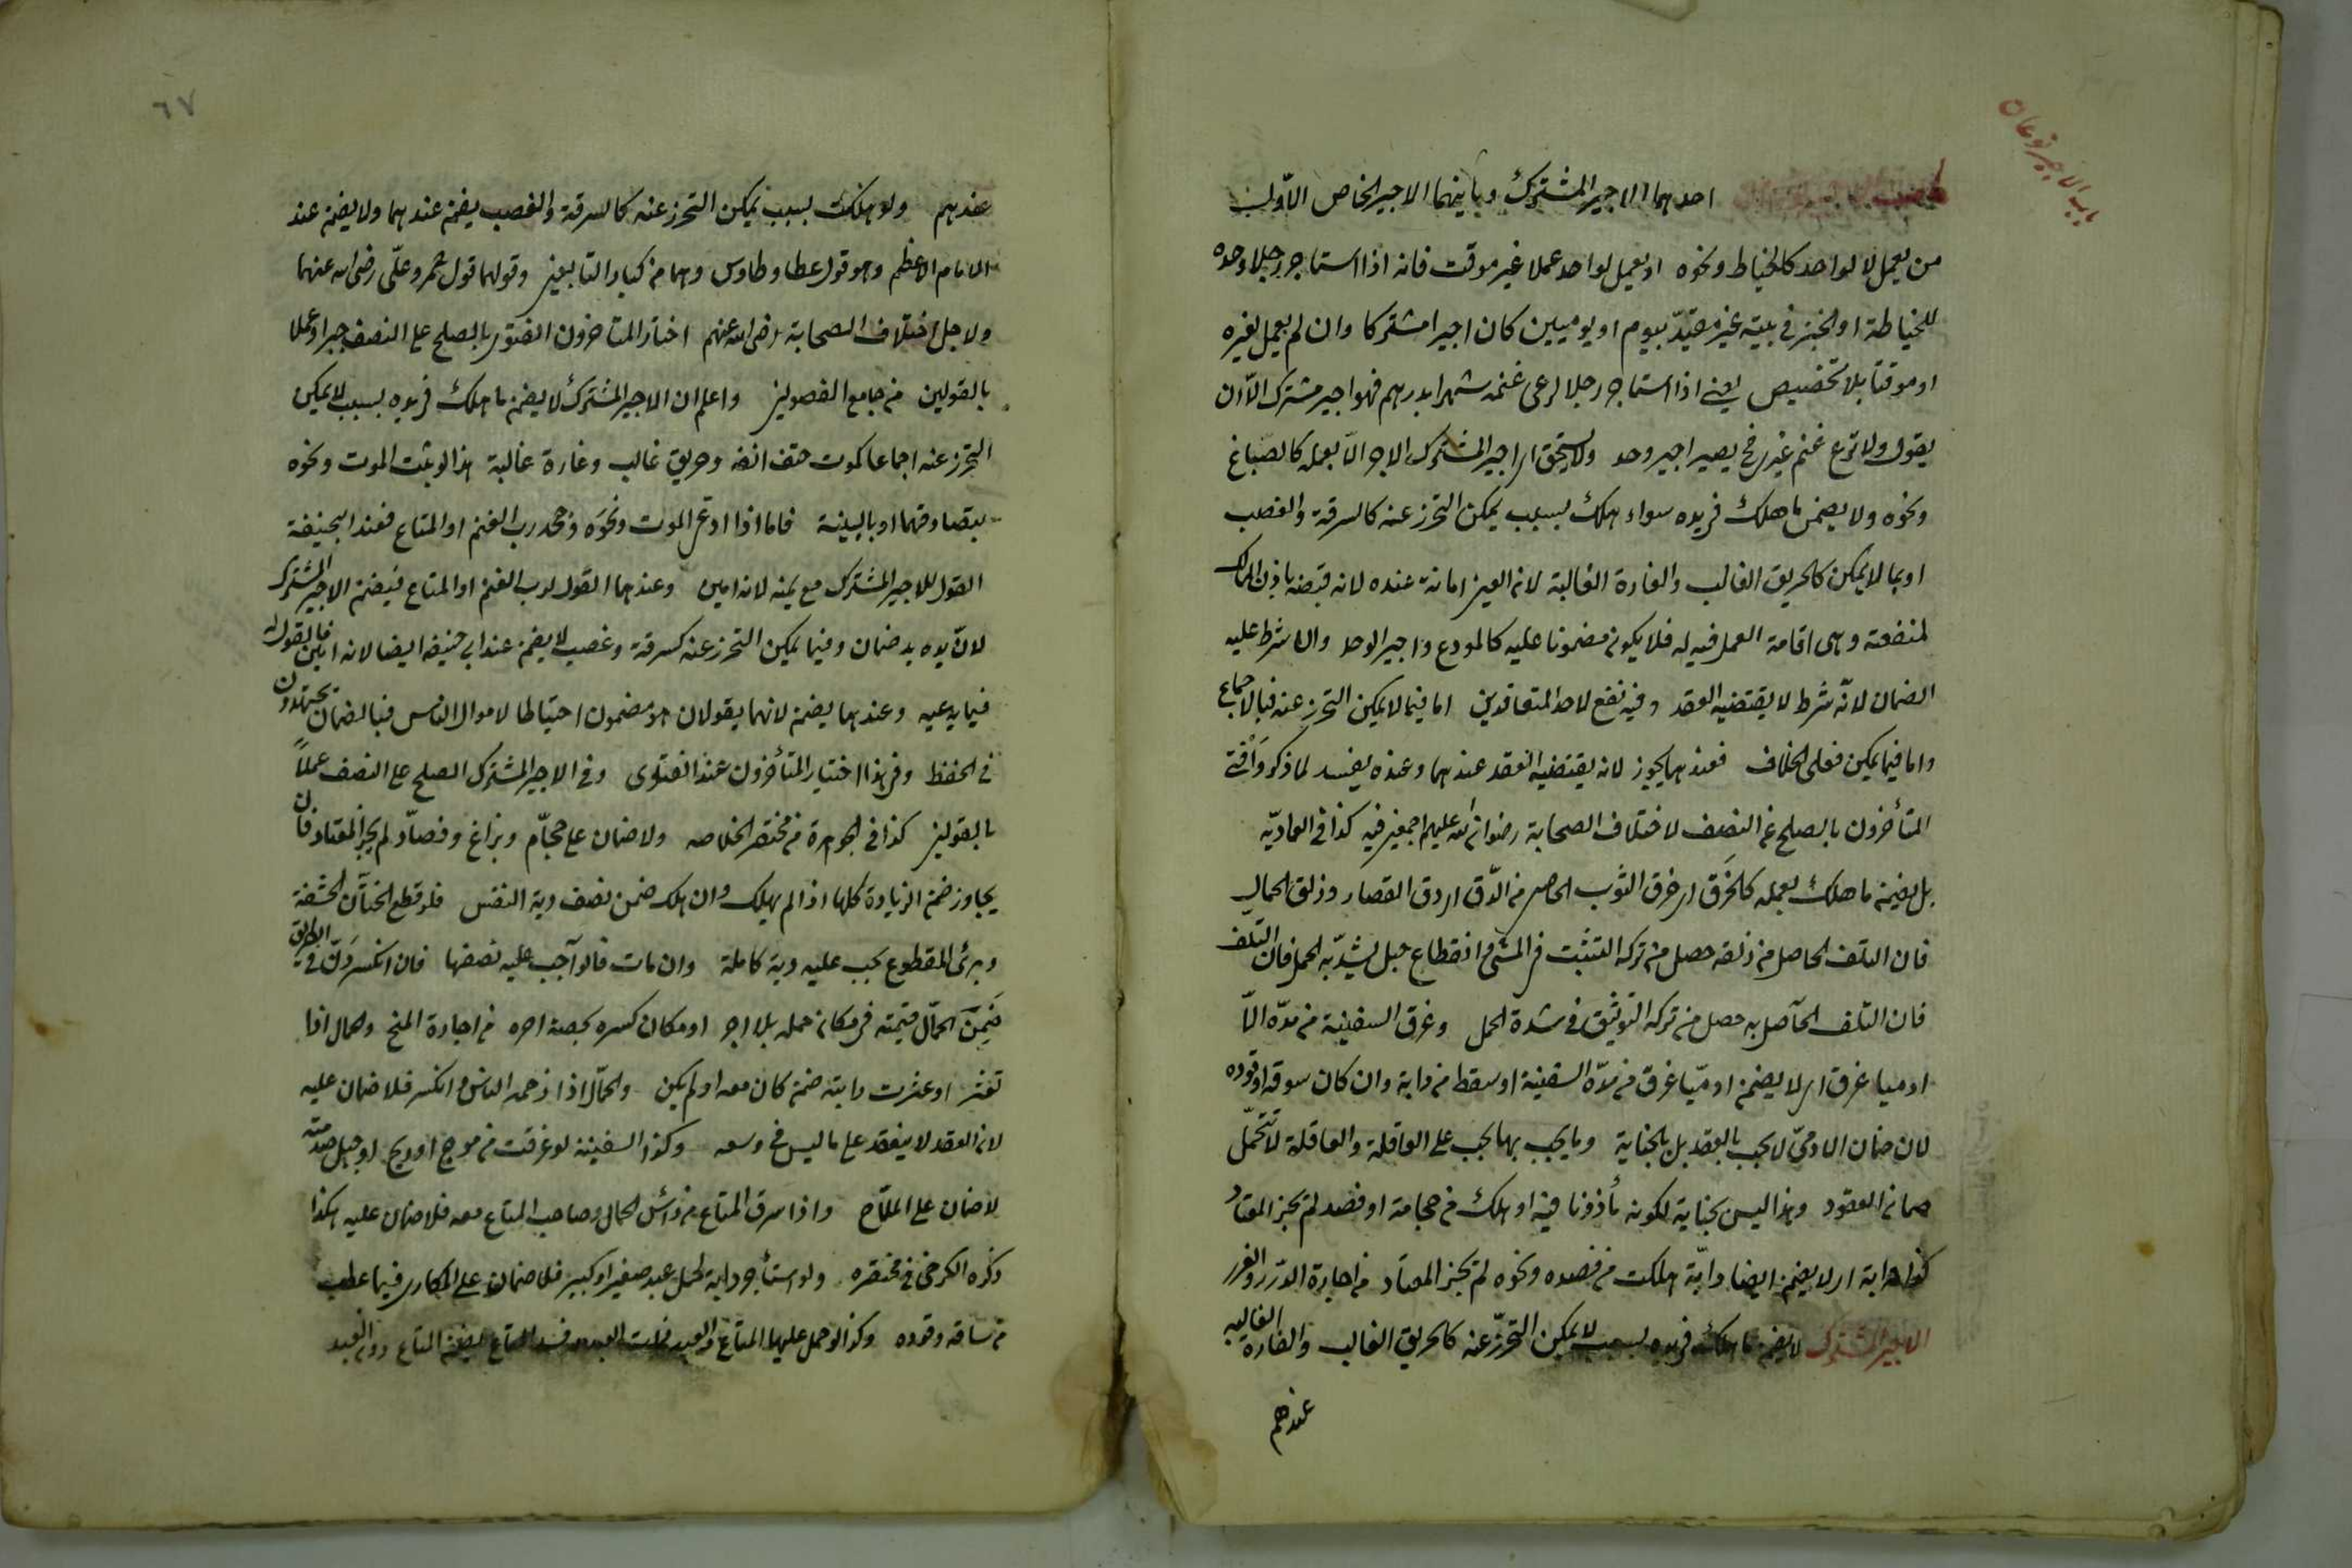 باب الاجير نوعان
احدهما الاجير المشترك وثانيهما الاجير الخاص الاول
من يعمل لا لواحد كالخياط ونحوه او يعمل لواحد عملا غير موقت فانه اذا استاجر رجلا وحده
للخياطة او الخبز في بيته غير مقيّد بيوم او يوميين كان اجيرا مشتركا وان لم يعمل لغيره
او موقتا بلا تخصيص يعني اذا استاجر رجلا لرعى غنمه شهرا بدرهم فهو اجير مشترك الّا ان
يقول ولا ترع غنم غيرى فح يصير اجير وحد ولا يستحق اى اجير المشترك الاجر الّا بعمله كالصباغ
ونحوه ولا يضمن ما هلك فى يده سواء هلك بسبب يمكن التحرز عنه كالسرقة والغصب
او بما لا يمكن كالحريق الغالب والغارة الغالبة لان العين امانة عنده لانه قبضه باذن المالك
لمنفعته وهى اقامة العمل فيه له فلا يكون مضمونا عليه كالمودع واجير الوحد وان شرط عليه
الضمان لانّه شرط لا يقتضيه العقد وفيه نفع لاحد المتعاقدين اما فيما لا يمكن التحرز عنه فبالاجماع
واما فيما يمكن فعلى الخلاف فعندهما يجوز لانه يقتضيه العقد عندهما وعنده يفسد لما ذكر وافتى
المتأخرون بالصلح على النصف لاختلاف الصحابة رضوان الله عليهم اجمعين فيه كذا فى العماديّه
بل يضمن ما هلك بعمله كالخَرق اى خرق الثوب الحاصل من الدّق اى دق القصار وزلق الحمال
فان التلف الحاصل من زلقه حصل من تركه التثبّت فى المشى وانقطاع حبل يشدّ به الحمل فان التلف
فان التلف الحاصل به حصل من تركه التوثيق فى شدة الحمل وغرق السفينة من مدّه الّا
ادميا غرق اى لا يضمن ادميّا غرق من مدّه السفينة او سقط من دابة وان كان سوقه او قوده
لان ضمان الادمىّ لا يجب بالعقد بل بالجناية وما يجب بها يجب على العاقلة والعاقلة لا تتحمّل
ضمان العقود وهذا ليس بجناية لكونه مأذونا فيه او هلك من حجامة او فصد لم يجز المعتاد
كذا دابة اى لا يضمن ايضا دابّة هلكت من فصده ونحوه لم يجز المعتاد من اجارة الدرر والغرر
الاجير المشترك لا يضمن ما هلك فى يده بسبب لا يمكن التحرّز عنه كالحريق الغالب والغارة الغالبه
عندهم
٦٧
عندهم ولو هلكت بسبب يمكن التحرز عنه كالسرقة والغصب يضمن عندهما ولا يضمن عند
الامام الاعظم وهو قول عطا وطاوس وهما من كبار التابعين وقولهما قول عمر وعلّى رضى الله عنهما
ولاجل اختلاف الصحابة رضى الله عنهم اختار المتاخرون الفتوى بالصلح على النصف جبرا وعملا
بالقولين من جامع الفصولين واعلم ان الاجير المشترك لا يضمن ما هلك فى يده بسبب لا يمكن
التحرز عنه اجماعا كموت حتف انفه وحريق غالب وغارة غالبة هذا لو يثبت الموت ونحوه
بتصادقهما او بالبينة فاما اذا ادعى الموت ونحوه وجحد رب الغنم او المتاع فعند ابيحنيفة
القول للاجير المشترك مع يمينه لانه امين وعندهما القول لرب الغنم او المتاع فيضمن الاجير المشترك
لانّ يده يد ضمان وفيما يمكن التحرز عنه كسرقة وغصب لا يضمن عند ابى حنيفة ايضا لانه امين فالقول له
فيما يدعيه وعندهما يضمن لانهما يقولان هو مضمون احتياطا لاموال الناس فبالضمان يجتهدون
فى الحفظ وفى هذا اختيار المتأخرون عند الفتوى وفى الاجير المشترك الصلح على النصف عملاً
بالقولين كذا فى الجوهرة من مختصر الخلاصه ولا ضمان على حجّام وبزاغ وفصاّد لم يجز المعتاد فان
يجاوز ضمن الزيادة كلها اذا لم يهلك وان هلك ضمن نصف دية النفس فلو قطع الختان الحشفة
وبرئ المقطوع يجب عليه دية كاملة وان مات فالواجب عليه نصفها فان انكسر دنّ فى الطريق
ضمن الحمّال قيمته فى مكان حمله بلا اجر او مكان كسره بحصة اجره من اجارة المنح والحمال اذا
تعثر او عثرت دابته ضمن كان معه او لم يكن والحمّال اذا زحمه الناس وانكسر فلا ضمان عليه
لان العقد لا ينعقد على ما ليس فى وسعه وكذا السفينة لو غرقت من موج او ريح او جبل صدمته
لا ضمان على الملاّح واذا سرق المتاع من رأس الحمال وصاحب المتاع معه فلا ضمان عليه هكذا
ذكره الكرخى فى مختصره ولو استأجر دابة لحمل عبد صغير او كبير فلا ضمان على المكارى فيما عطب
من ساقه وقوده وكذا لو حمل عليها المتاع والعبد فسد المتاع يضمن المتاع دون العبد